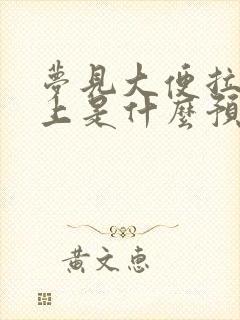 夢見大便拉
上是什麼預
黃文惠